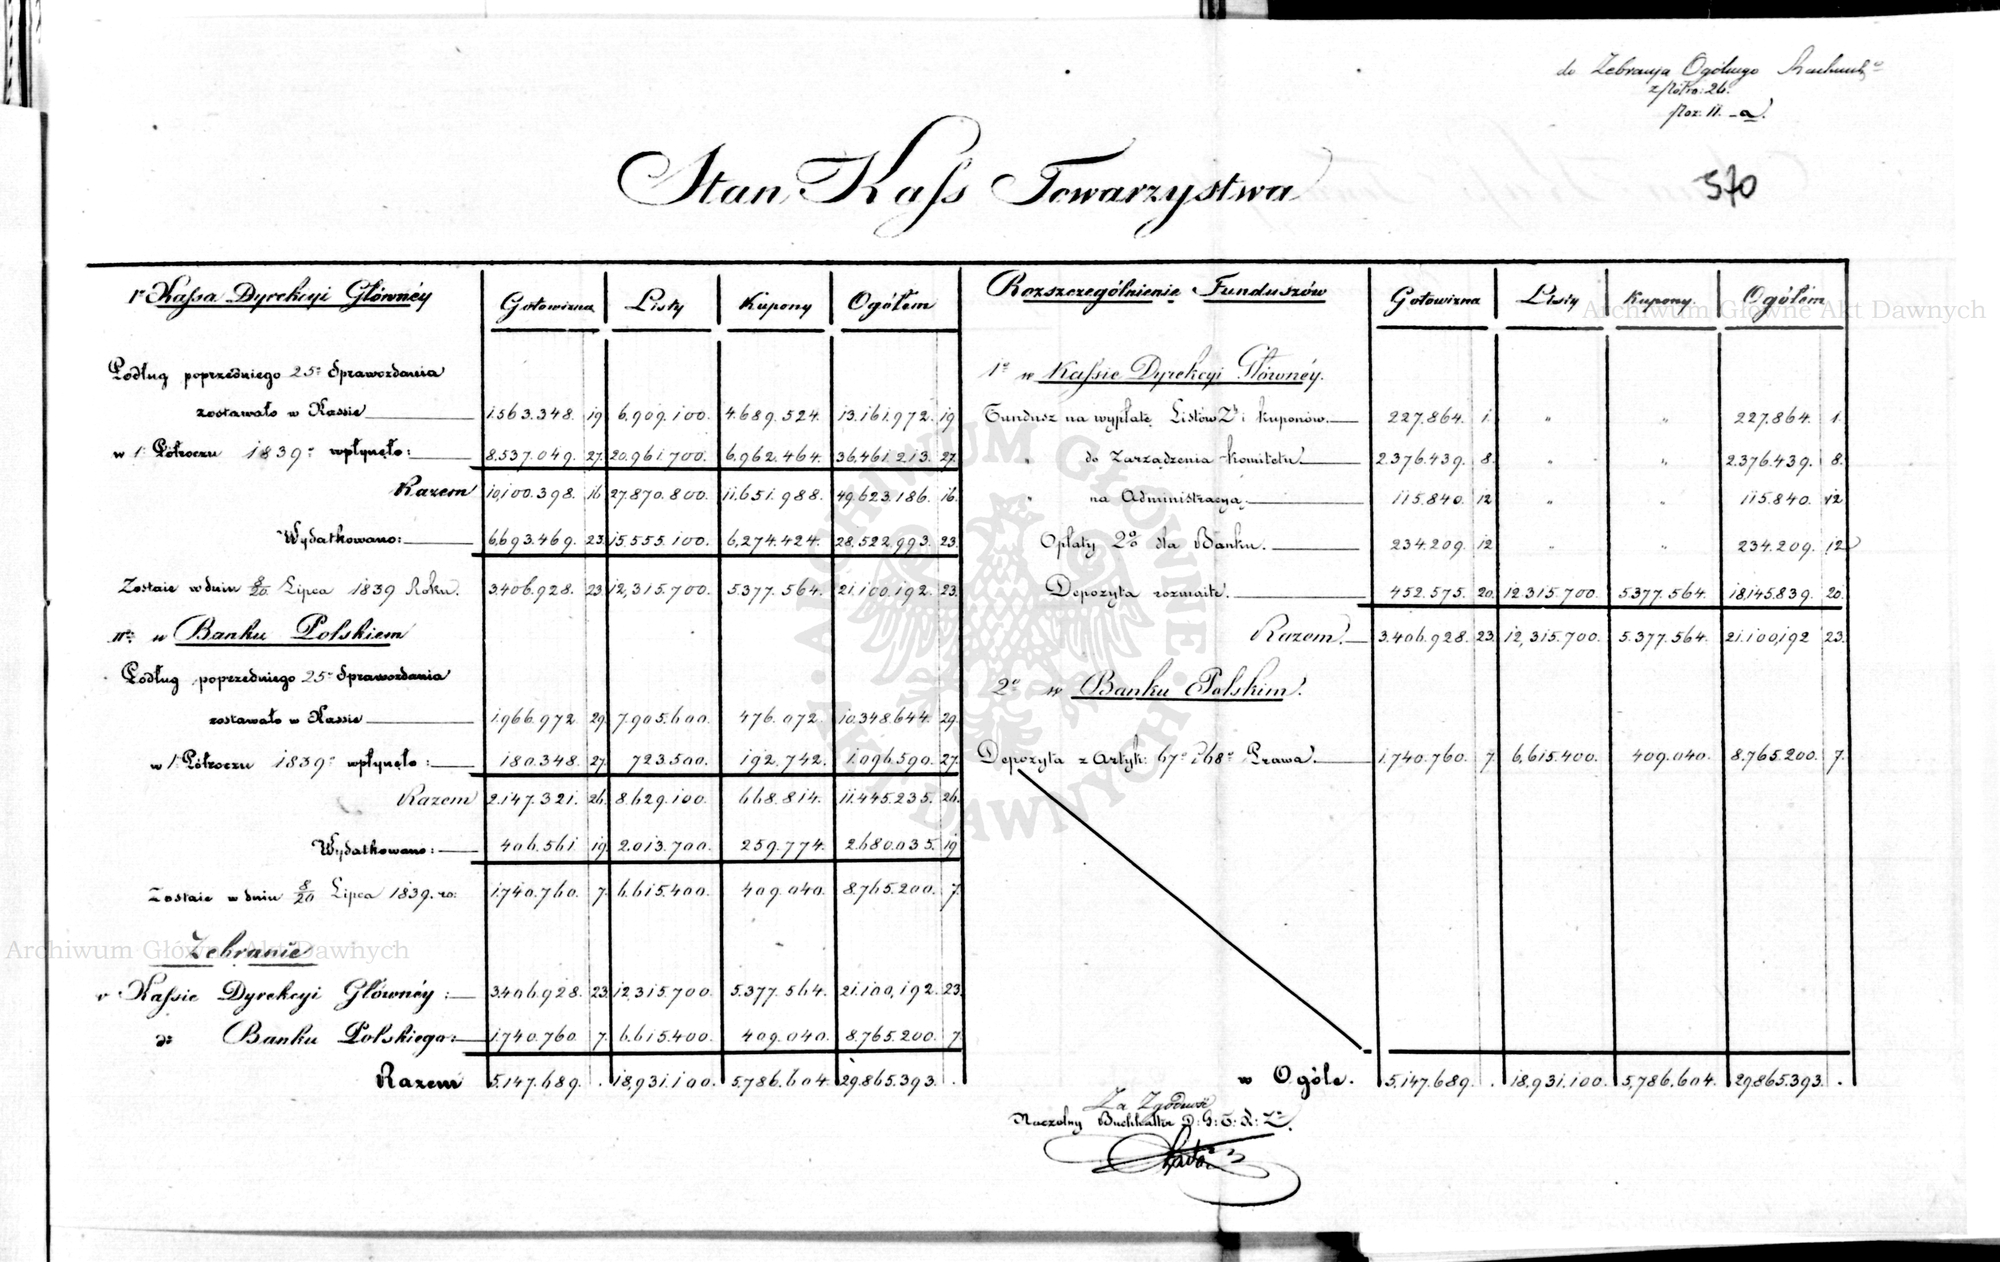 do Zebrania Ogólnego
Poz. II. a.
570
Stan Kass Towarzystwa
Iº Kassa Dyrekcyi Głównéy | Gotowizna | Listy | Kupony | Ogółem
Podług poprzedniego 25º Sprawozdania
zostawało w Kassie | 1.563.348. 19 | 6.909.100. | 4.689.524. | 13.161.972. 19
w 1. Półroczu 1839º wpłynęło: | 8.537.049. 27. | 20.961.700. | 6.962.464. | 36.461.213. 27.
Razem | 10,100.398. 16 | 27.870.800. | 11.651.988. | 49.623.186. 16.
Wydatkowano: | 6,693.469. 23. | 15.555.100. | 6,274.424. | 28.522.993. 23.
Zostaie w dniu 8/20 Lipca 1839 Roku. | 3.406.928. 23. | 12,315.700. | 5.377.564. | 21.100.192. 23.
IIº w Banku Polskiem
Podług poprzedniego 25º Sprawozdania
zostawało w Kassie | 1.966.972. 29. | 7.905.600. | 476.072. | 10.348.644. 29.
w 1. Półroczu 1839º wpłynęło: | 180.348. 27. | 723.500. | 192.742. | 1.096.590. 27.
Razem | 2.147.321. 26. | 8.629.100. | 668.814. | 11.445.235. 26.
Wydatkowano: | 406.561. 19. | 2.013.700. | 259.774. | 2.680.035. 19
Zostaie w dniu 8/20 Lipca 1839. ro: | 1.740.760. 7. | 6.615.400. | 409.040. | 8.765.200. 7.
Zebranie
w Kassie Dyrekcyi Głównéy: | 3.406.928. 23. | 12,315.700. | 5.377.564. | 21.100,192. 23.
dº Banku Polskiego: | 1.740.760. 7. | 6.615.400. | 409.040. | 8.765.200. 7.
Razem | 5.147.689. . | 18,931.100. | 5,786.604. | 29.865.393. .
Rozszczególnienie Funduszów | Gotowizna | Listy | Kupony. | Ogółem
1º w Kassie Dyrekcyi Głównéy.
Fundusz na wypłatę Listów Zº i Kuponów. | 227.864. 1. | " | " | 227.864. 1.
" do Zarządzenia Komitetu. | 2.376.439. 8. | " | " | 2.376.439. 8.
" na Administracyą. | 115.840. 12 | " | " | 115.840. 12
Opłaty 2% dla Banku. | 234.209. 12 | " | " | 234.209. 12
Depozyta rozmaite. | 452.575. 20. | 12.315.700. | 5377.564. | 18,145.839. 20.
Razem. | 3.406.928. 23. | 12,315.700. | 5.377.564. | 21.100,192 23.
2º w Banku Polskim.
Depozyta z Artyk: 67º i 68º Prawa. | 1.740.760. 7. | 6,615.400. | 409.040. | 8.765.200. 7.
w Ogóle. | 5,147.689. . | 18,931.100. | 5,786.604. | 29.865.393. .
Za Zgodność
Naczelny Buchhalter D: G: T: K: Zº.
Archiwum Główne Akt Dawnych
Archiwum Główne Akt Dawnych
ARCHIWUM GŁÓWNE AKT DAWNYCH